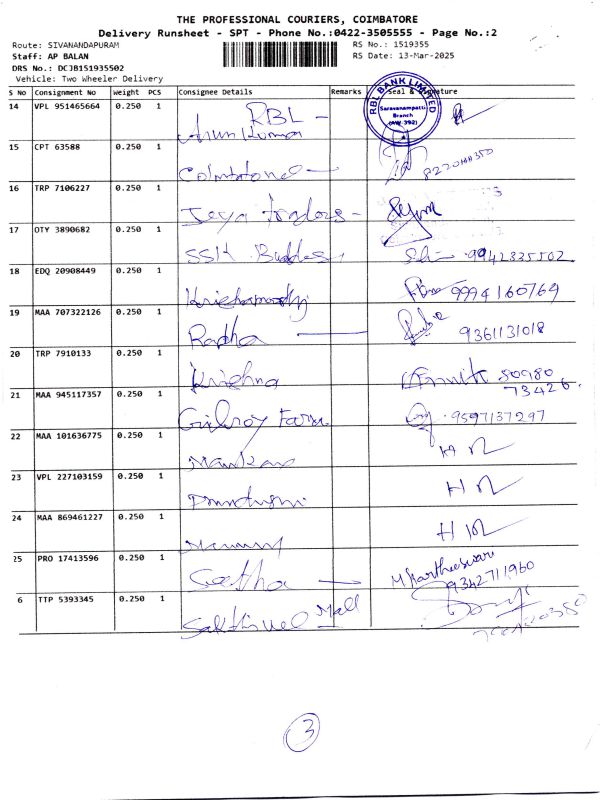 THE PROFESSIONAL COURIERS, COIMBATORE
Delivery Runsheet - SPT - Phone No.:0422-3505555 - Page No.:2
Route: SIVANANDAPURAM RS No.: 1519355
Staff: AP BALAN RS Date: 13-Mar-2025
DRS No.: DCJB151935502
Vehicle: Two Wheeler Delivery
S No Consignment No Weight PCS Consignee Details Remarks Seal & Signature
RBL BANK LIMITED
Saravanampatti
Branch
14 VPL 951465664 0.250 1 RBL -
Arun Kumar
15 CPT 63588 0.250 1
16 TRP 7106227 0.250 1 Jeya Traders -
17 OTY 3890682 0.250 1 SSK 9942335502
18 EDQ 20908449 0.250 1 Krishnamoorthy 9994160769
19 MAA 707322126 0.250 1 Radha 9361131018
20 TRP 7910133 0.250 1 Krishna 50980
73426
21 MAA 945117357 0.250 1 Gilroy Farm 9597137297
22 MAA 101636775 0.250 1
23 VPL 227103159 0.250 1
24 MAA 869461227 0.250 1
25 PRO 17413596 0.250 1 Geetha M Kartheeswari
9342711960
6 TTP 5393345 0.250 1 Sakthivel Mall
3